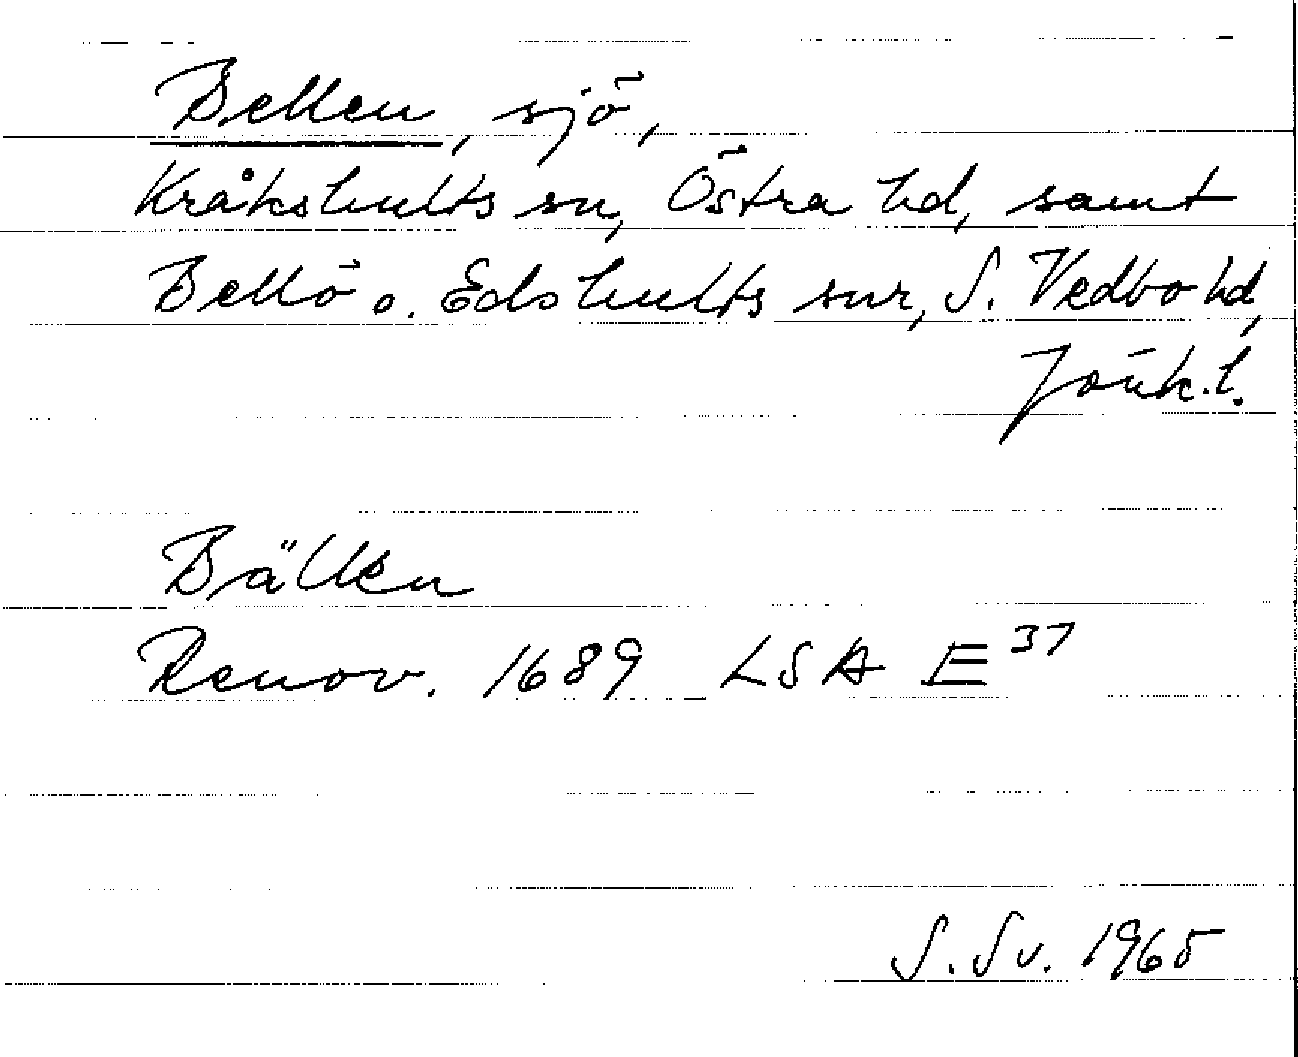 Bellen, sjö,
Kråkshults sn, Östra hd, samt
Bellö o. Edshults snr, S. Vedbo hd,
Jönk. l.
Bällen
Renov. 1689 LSA E 37
S. Sv. 1965